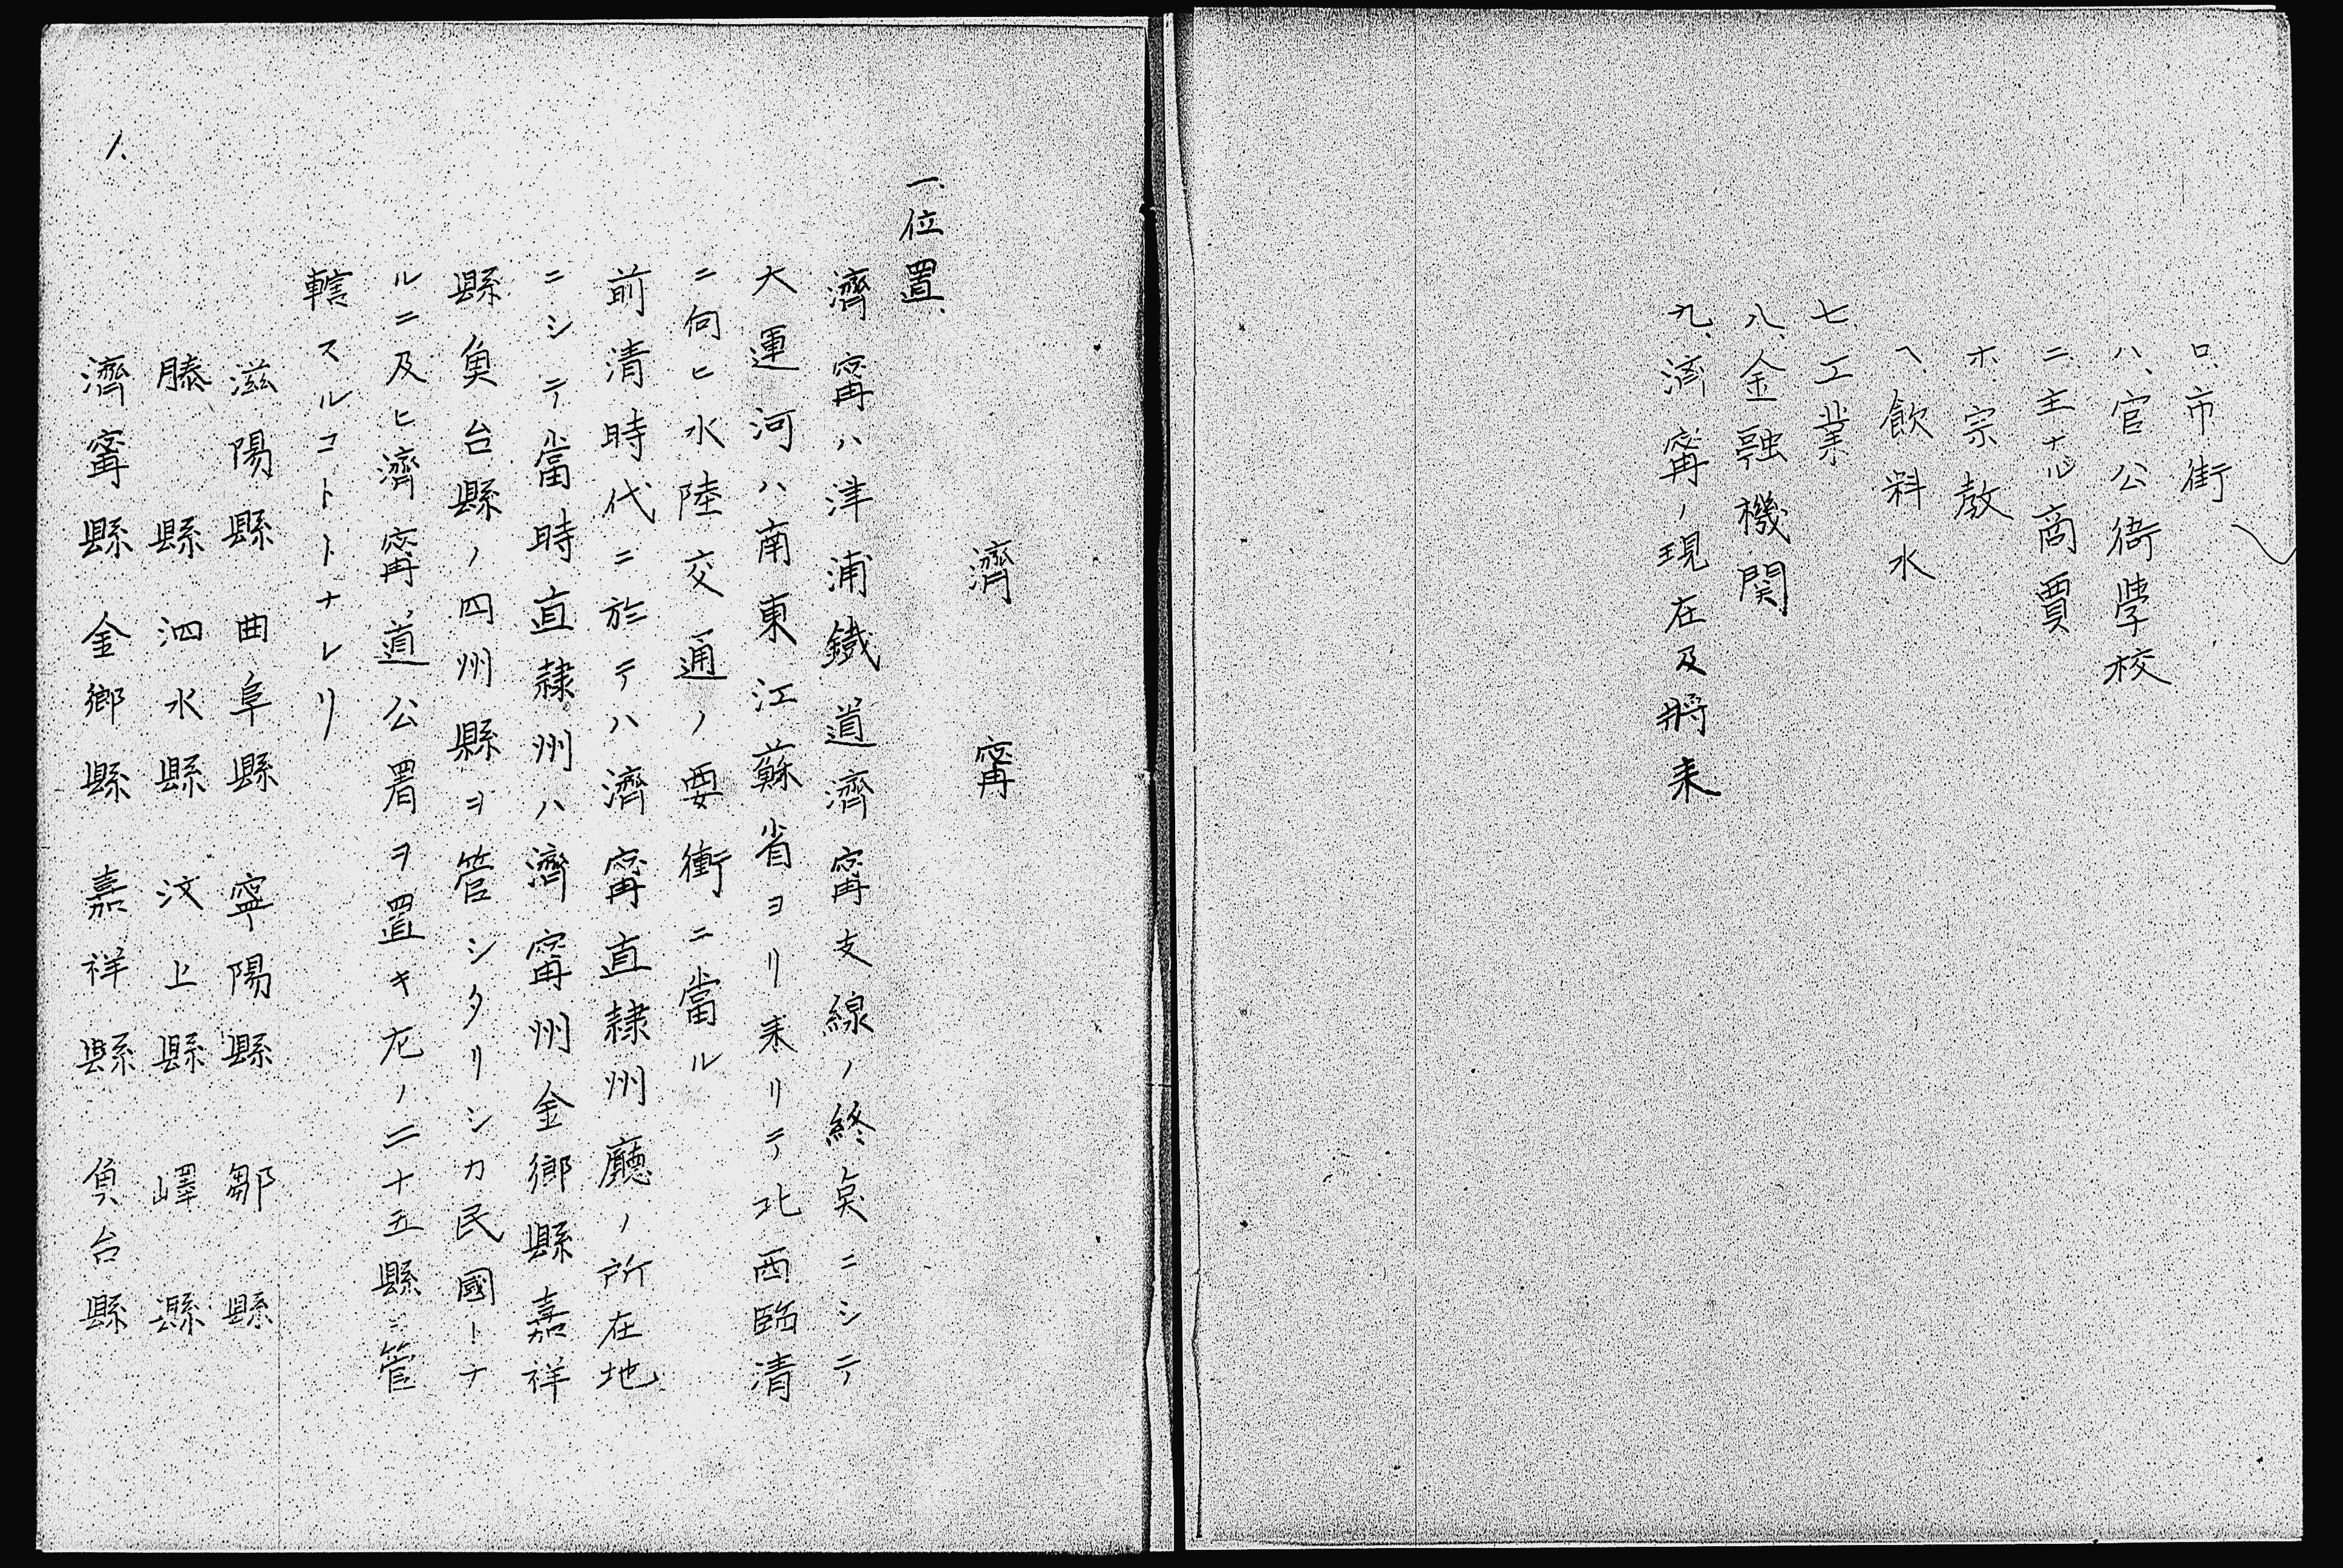 ロ、市街
ハ、官公衙学校
ニ、主ナル商賈
ホ、宗教
ヘ、飲料水
七、工業
八、金融機関
九、済甯ノ現在及将来
濟甯
一、位置、
濟甯ハ津浦鐵道濟甯支線ノ終点ニシテ
大運河ハ南東江蘇省ヨリ来リテ北西臨清
ニ向ヒ水陸交通ノ要衝ニ當ル
前清時代ニ於テハ濟甯直隷州廳ノ所在地
ニシテ當時直隷州ハ濟甯州金鄉縣嘉祥
縣魚台縣ノ四州縣ヲ管シタリシカ民國トナ
ルニ及ヒ濟甯道公署ヲ置キ左ノ二十五縣ニ管
轄スルコトトナレリ
滋陽縣 曲阜縣 寧陽縣 鄒縣
滕縣 泗水縣 汶上縣 嶧縣
濟甯縣 金鄉縣 嘉祥縣 魚台縣